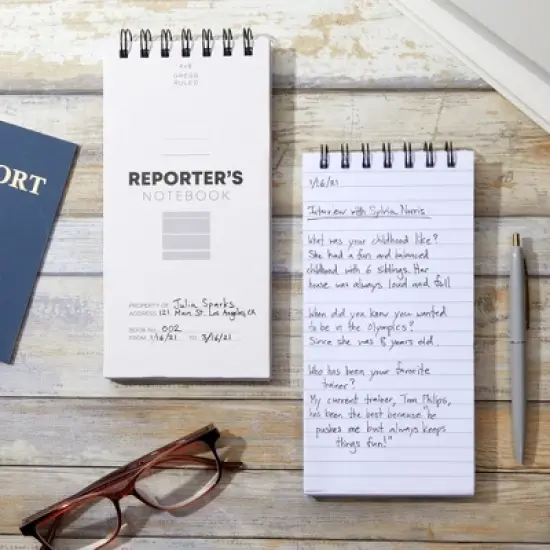 PORT
GREGG
RULED
REPORTER'S
NOTEBOOK
PROPERTY OF Julia Sparks
ADDRESS 121 Main St. Los Angeles, CA
BOOK NO. 002
FROM 1/16/21 TO 3/16/21
1/16/21
Interview with Sylvia Norris
What was your childhood like?
She had a fun and balanced
childhood with 6 siblings. Her
house was always loud and full
When did you know you wanted
to be in the Olympics?
Since she was 8 years old.
Who has been your favorite
trainer?
My current trainer, Tom Philips,
has been the best because "he
pushes me but always keeps
things fun!"